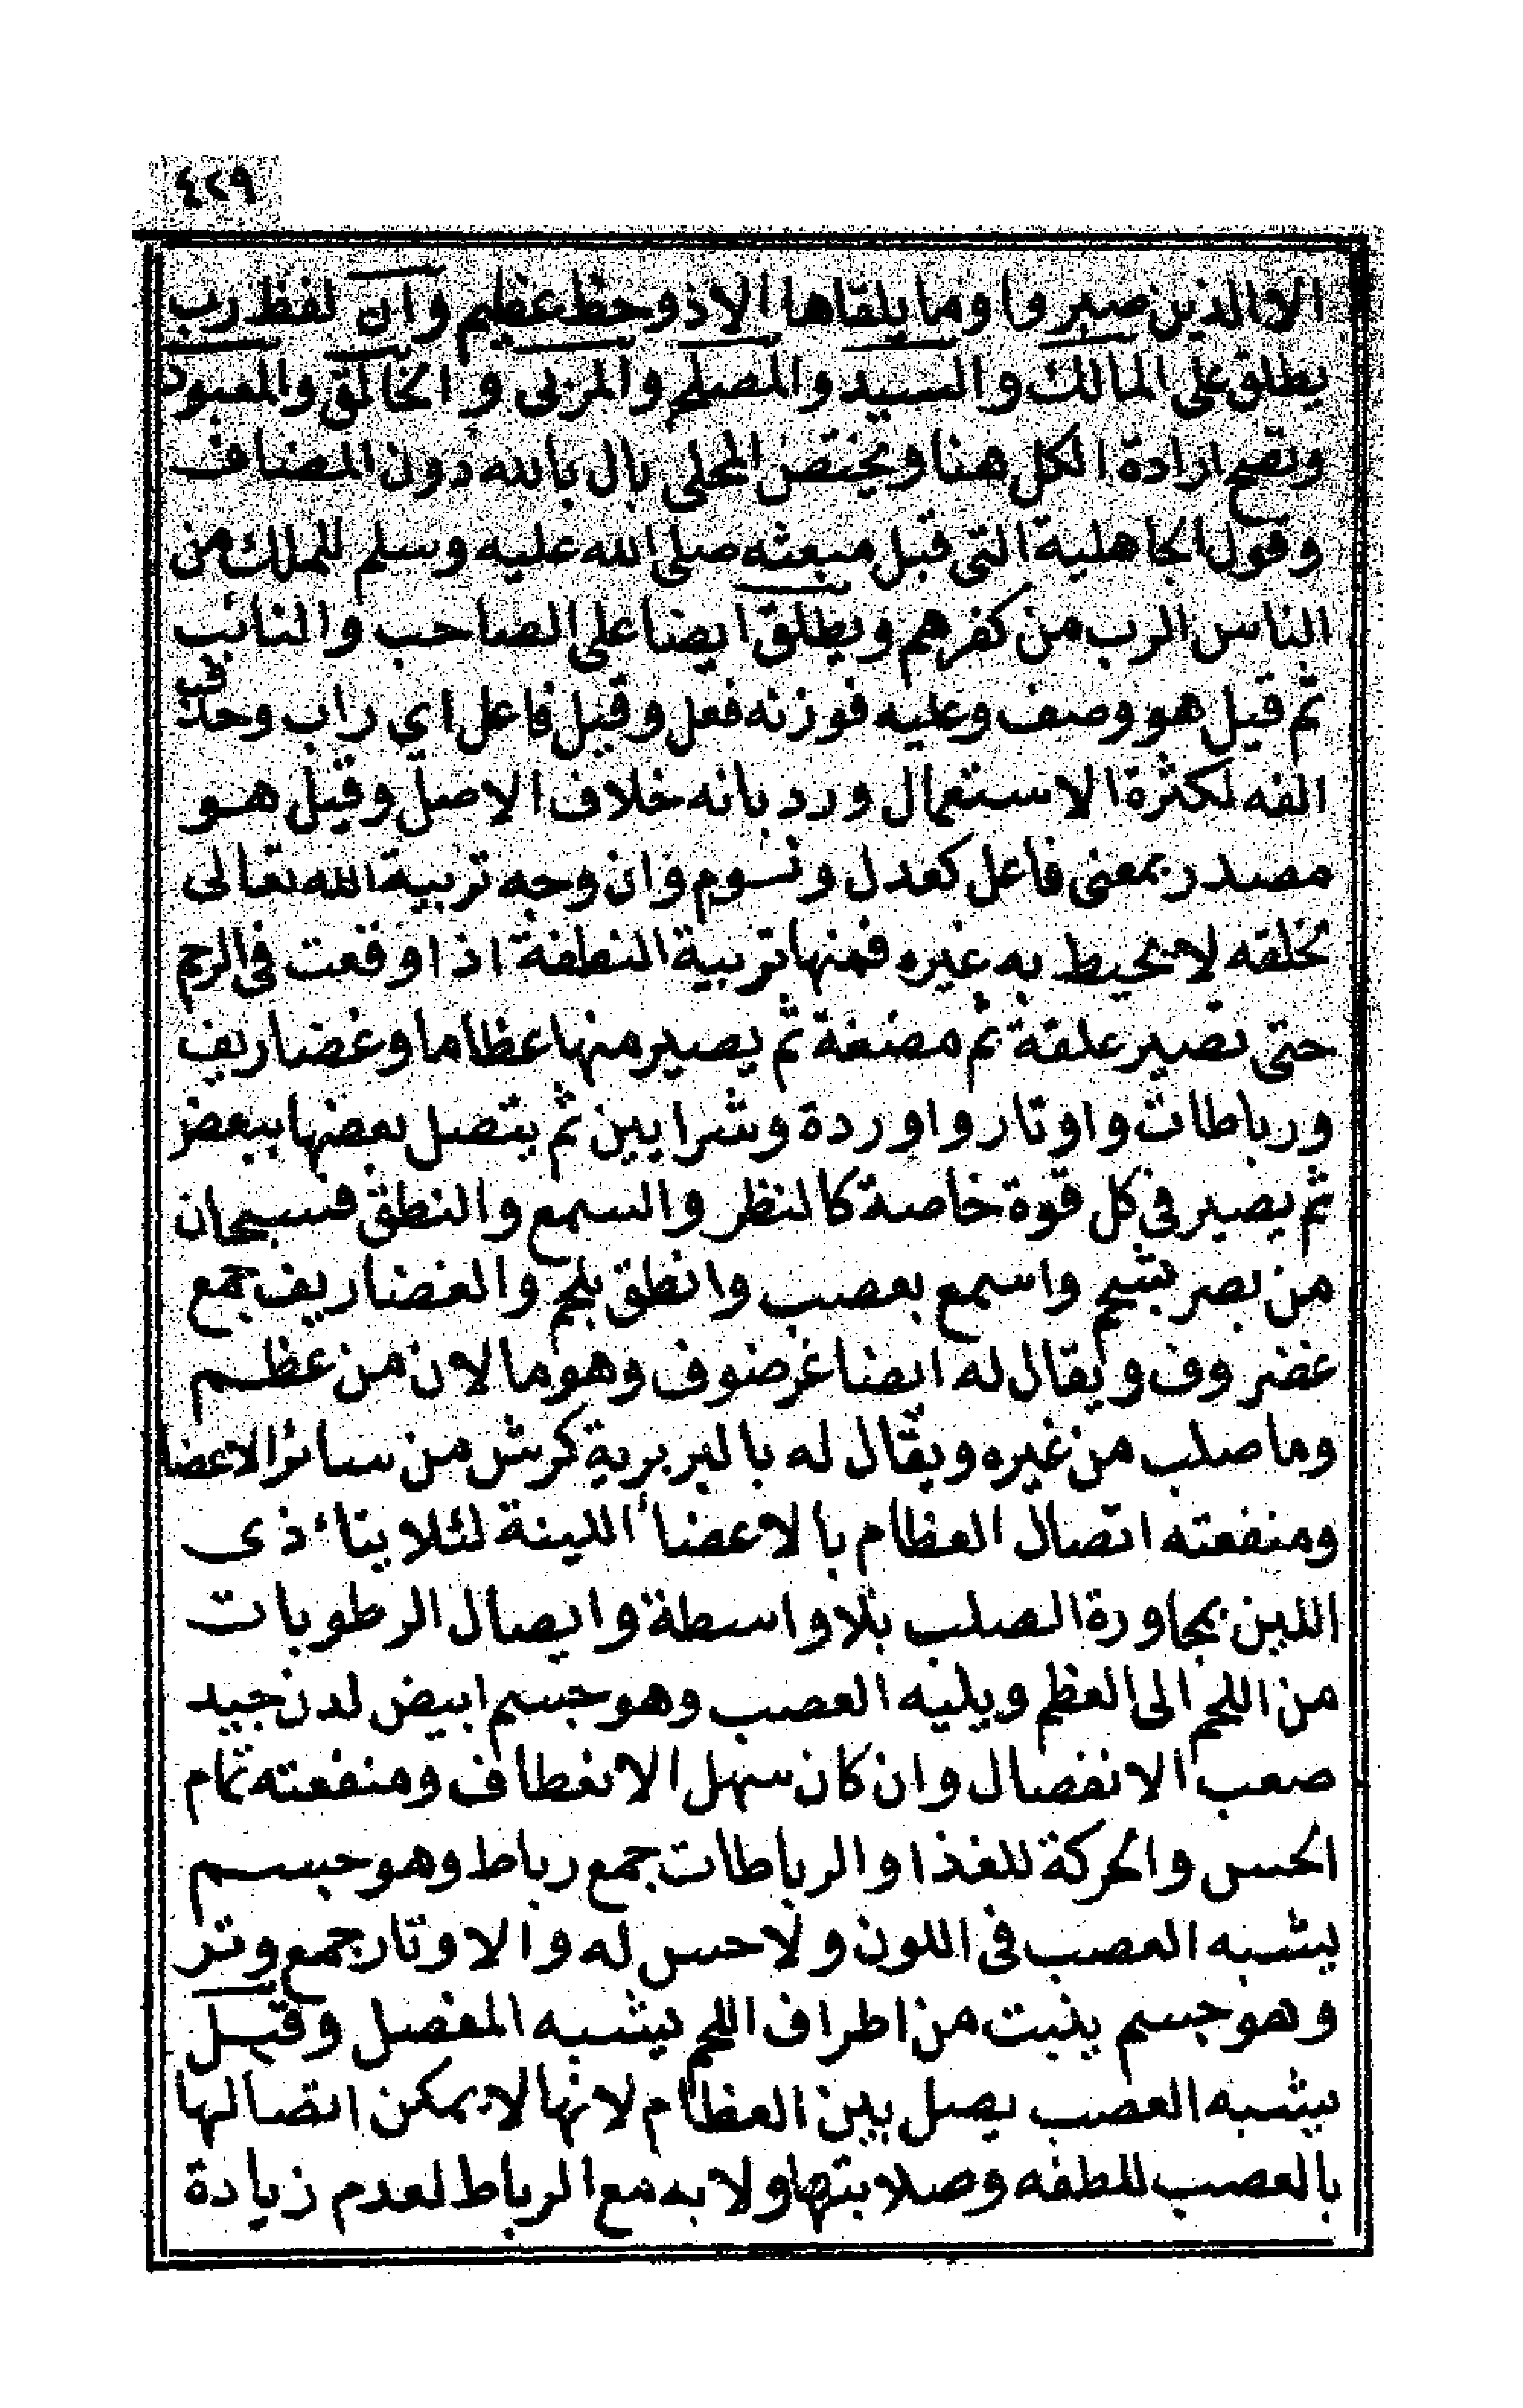 ٤٢٩
الا الذين صبروا وما يلقاها الا ذو حظ عظيم وان لفظ رب
يطلق على المالك والسيد والمصلح والمربى والخالق والمعبود
وتصح ارادة الكل هنا ويختص المحلى بال بالله دون المضاف
وقول الجاهلية التى قبل مبعثه صلى الله عليه وسلم للملك من
الناس الرب من كفرهم ويطلق ايضا على الصاحب والثابت
ثم قيل هو وصف وعليه فوزنه فعل وقيل فاعل اي راب وحذفت
الفه لكثرة الاستعمال ورد بانه خلاف الاصل وقيل هو
مصدر بمعنى فاعل كعدل ونسوم وان وجه تربية الله تعالى
لخلقه لا يحيط به غيره فمنها تربية النطفة اذا وقعت فى الرحم
حتى تصير علقة ثم مضغة ثم يصير منها عظاما وغضاريف
ورباطات واوتار واوردة وشرايين ثم يتصل بعضها ببعض
ثم يصير فى كل قوة خاصة كالنظر والسمع والنطق فسبحان
من بصر بشحم واسمع بعصب وانطق بلحم والغضاريف جمع
غضروف ويقال له ايضا غرضوف وهو ما لان من عظم
وما صلب من غيره ويقال له بالبربرية كرش من سائر الاعضا
ومنفعته اتصال العظام بالاعضاء اللينة لئلا يتاءذى
اللين بمجاورة الصلب بلا واسطة وايصال الرطوبات
من اللحم الى العظم ويليه العصب وهو جسم ابيض لدن جيد
صعب الانفصال وان كان سهل الانعطاف ومنفعته تمام
الحس والحركة للغذا والرباطات جمع رباط وهو جسم
يشبه العصب فى اللون ولا حس له والاوتار جمع وتر
وهو جسم ينبت من اطراف اللحم يشبه المفصل وقيل
يشبه العصب يصل بين العظام لانها لا يمكن اتصالها
بالعصب للطفه وصلابتها ولا به مع الرباط لعدم زيادة